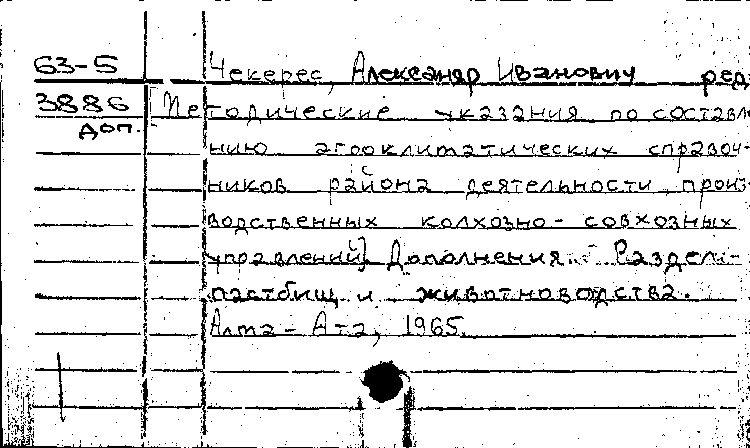 63-5 Чекерес, Александр Иванович ред.
3886 [Методические указания по составле
доп. нию агроклиматических справоч-
ников района деятельности произ-
водственных колхозно-совхозных
управлений]. Дополнения. Разделы-
пастбищ и животноводства.
Алма-Ата, 1965.